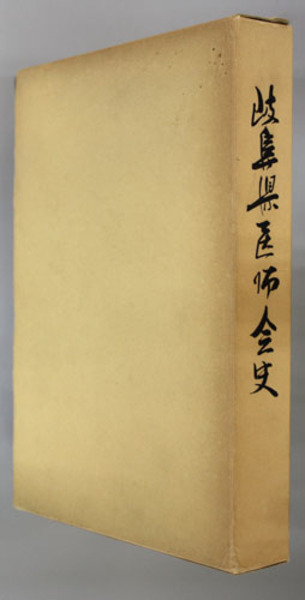 岐阜県医师会史